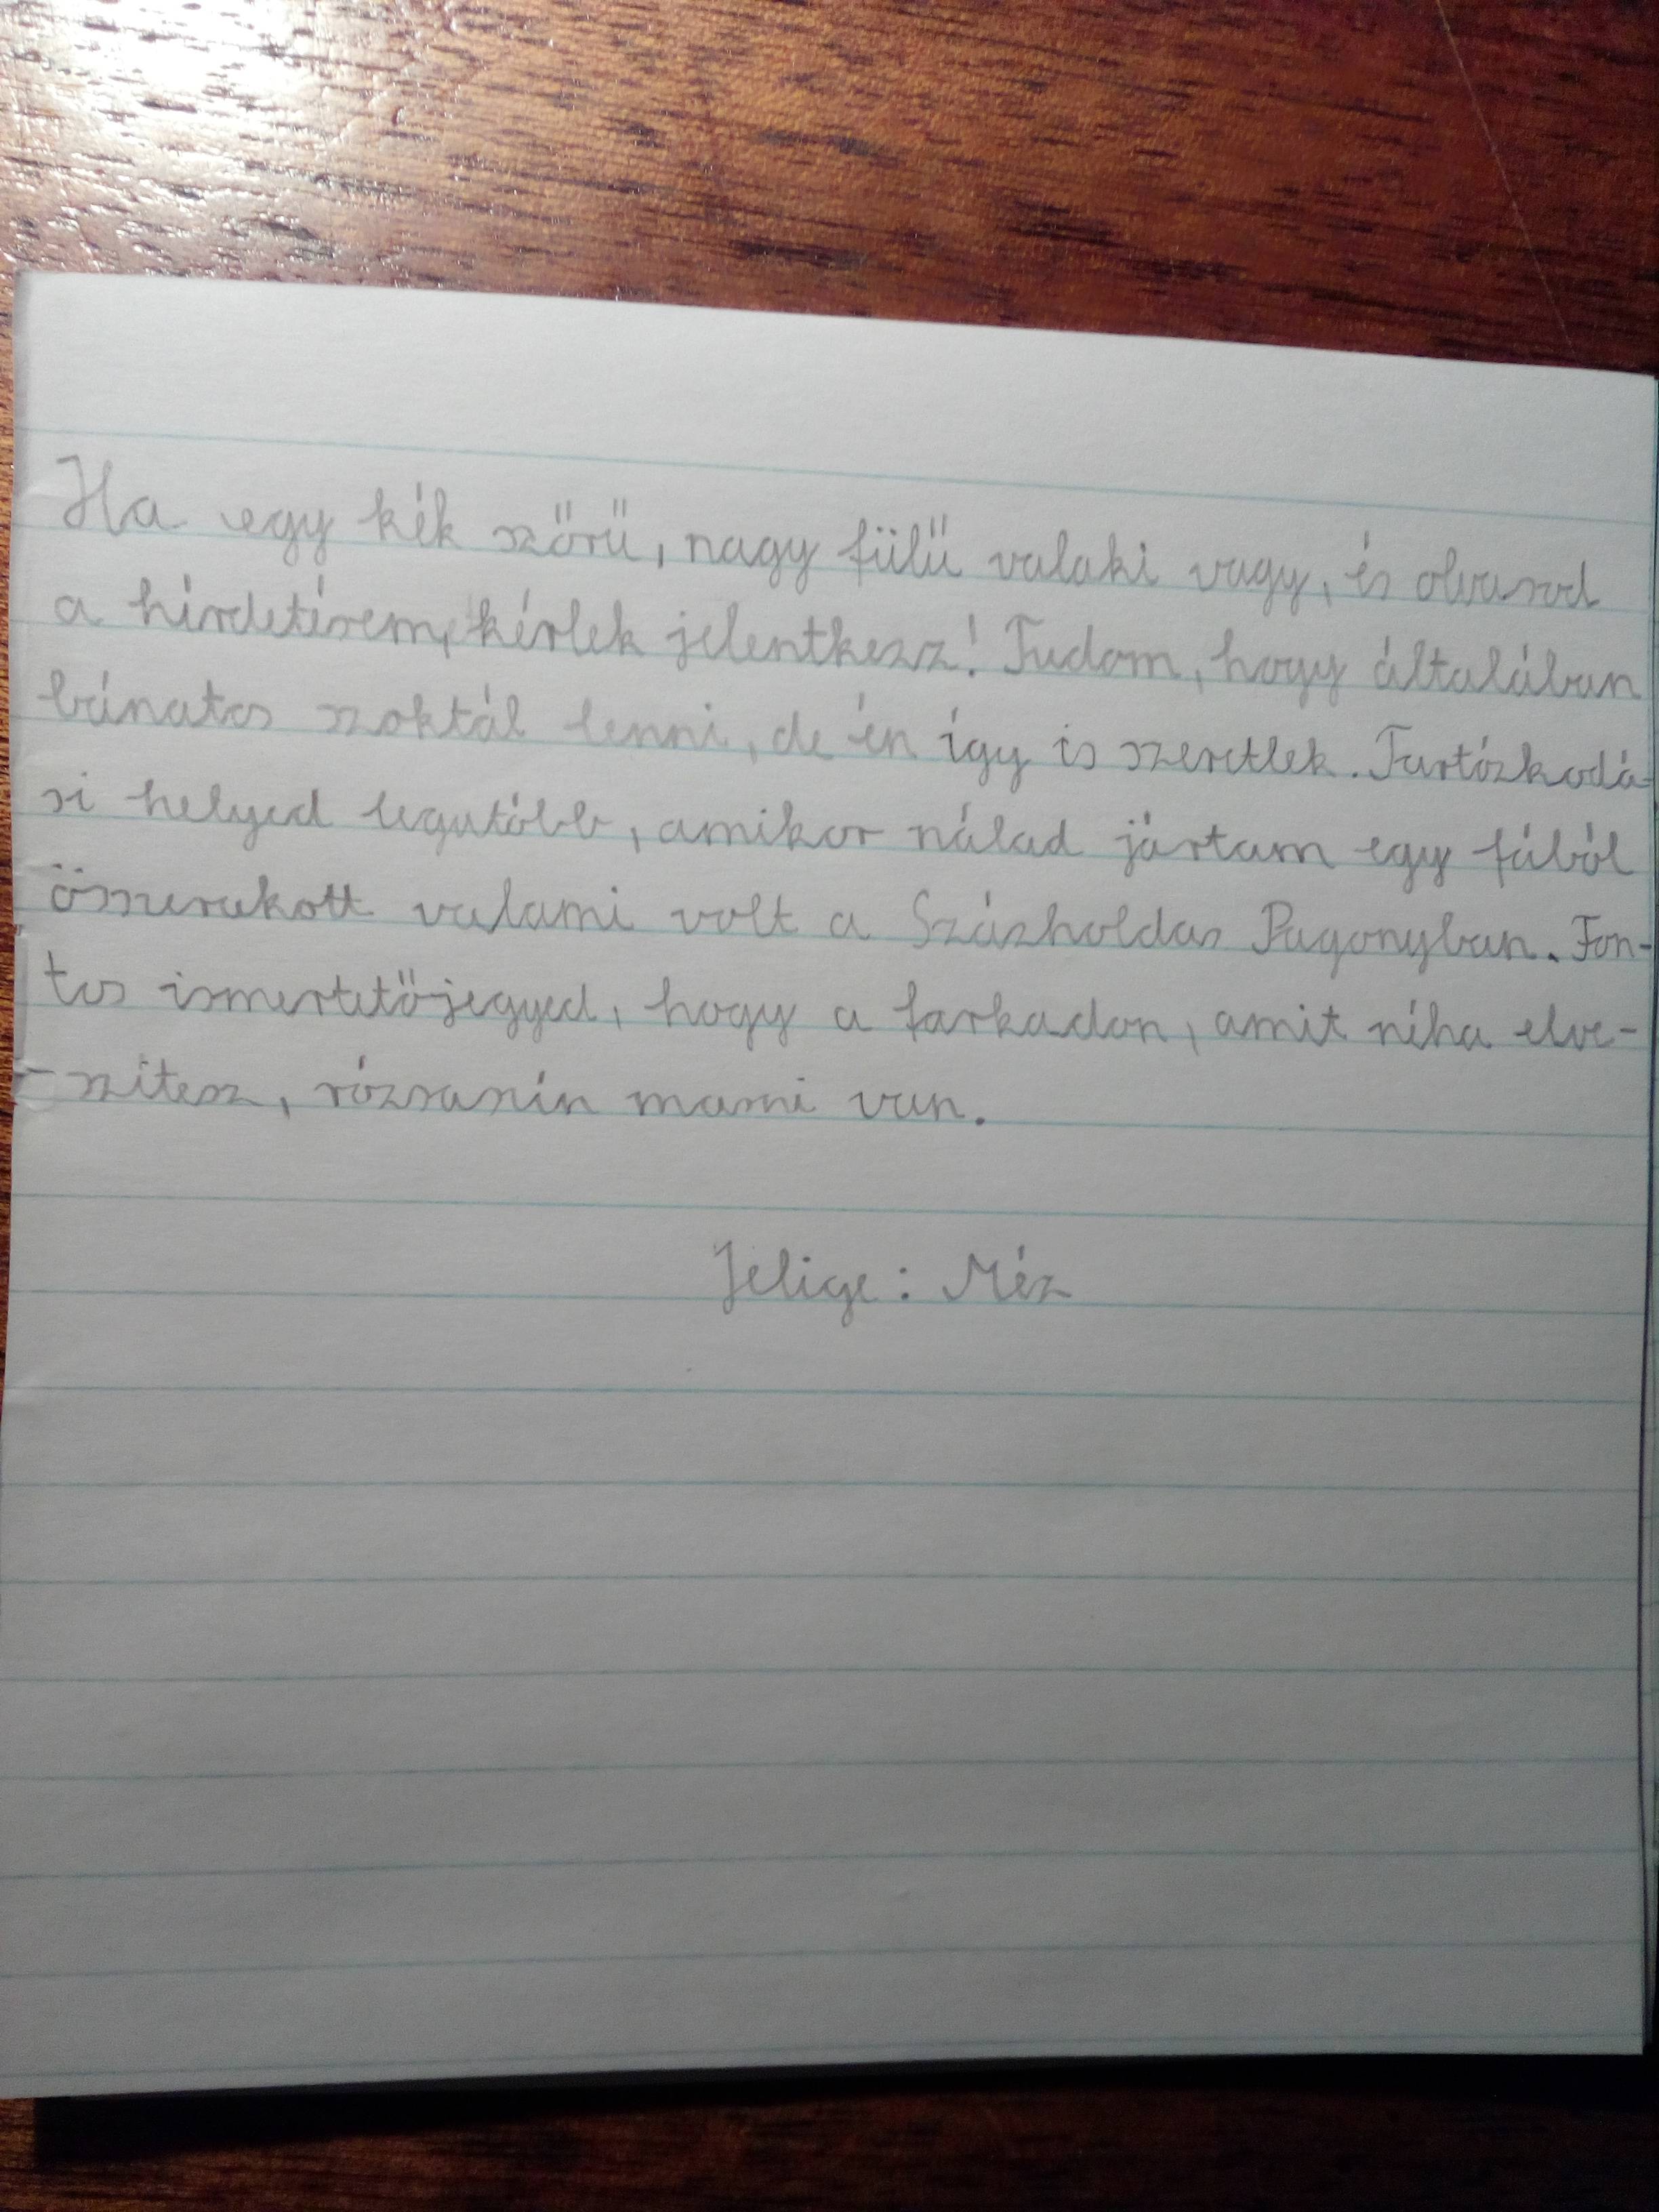 Ha egy kék szőrű, nagy fülű valaki vagy, és olvasod
a hirdetésem, kérlek jelentkezz! Tudom, hogy általában
bánatos szoktál lenni, de én így is szeretlek. Tartózkodá-
si helyed legutóbb, amikor nálad jártam egy fából
összerakott valami volt a Százholdas Pagonyban. Fon-
tos ismertetőjegyed, hogy a farkadon, amit néha elve-
szítesz, rózsaszín masni van.
Jelige: Méz